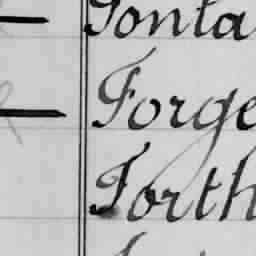 Fonta
Forge
Forth